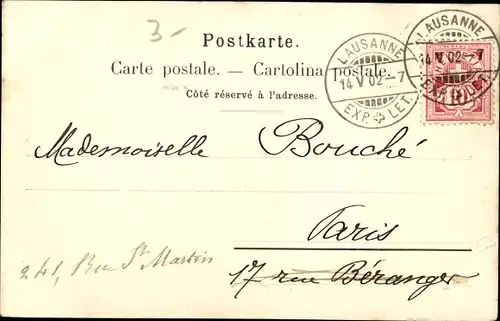 3-
Postkarte.
Carte postale. — Cartolina postale.
Côté réservé à l'adresse.
LAUSANNE
14 V 02 - 7
EXP. LET.
LAUSANNE
14 V 02 - 7
EXP. LET.
10
Mademoiselle Bouché
Paris
241, Rue St Martin
17 rue Béranger